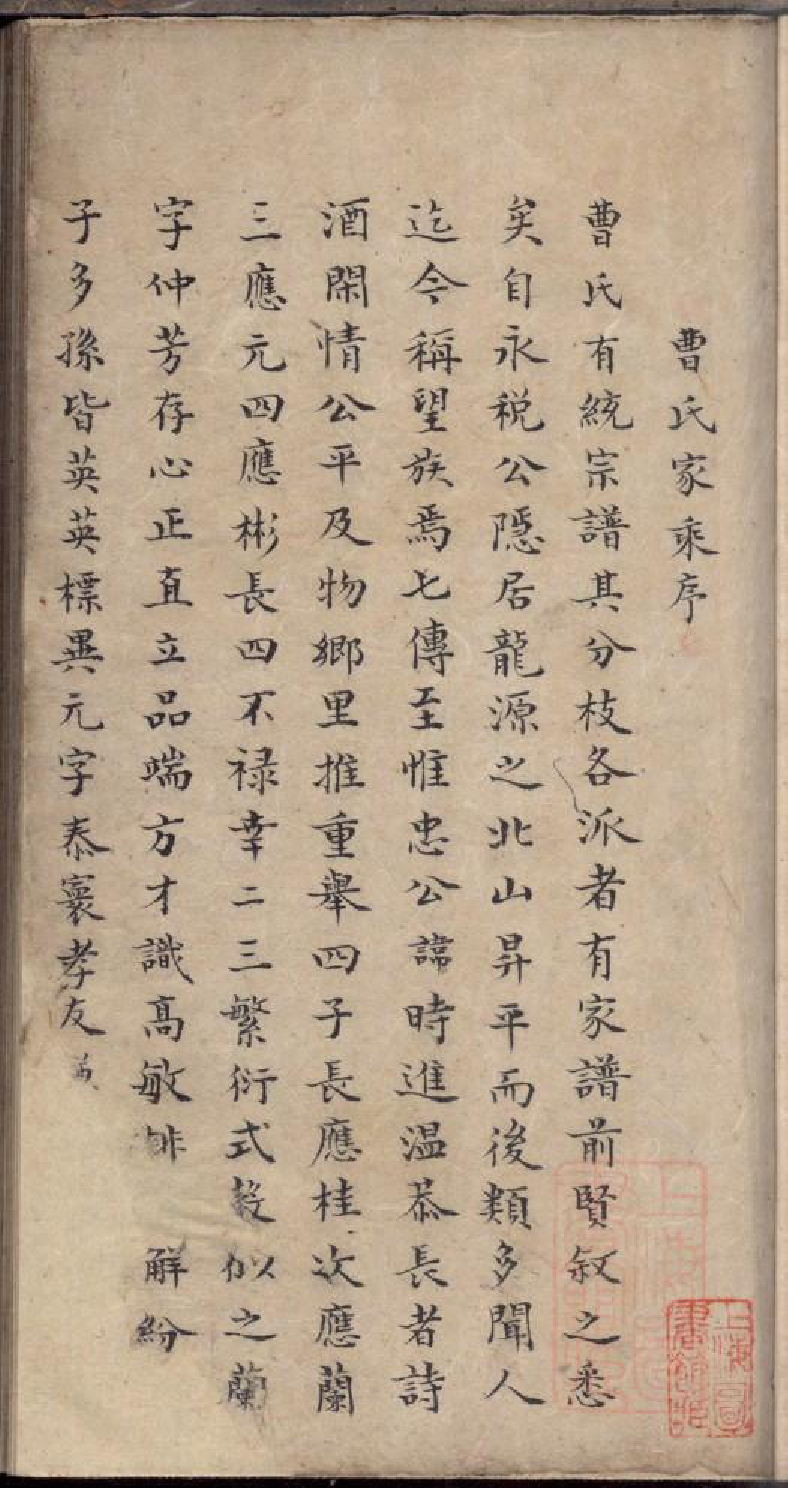 曹氏家乘序
曹氏有統宗譜其分枝各派者有家譜前賢叙之悉
矣自永税公隱居龍源之北山昇平而後類多聞人
迄今稱望族焉七傳至惟忠公諱時進温恭長者詩
酒閑情公平及物鄉里推重舉四子長應桂次應蘭
三應元四應彬長四不禄幸二三繁衍式榖似之蘭
字仲芳存心正直立品端方才識高敏排解紛
子多孫皆英英標異元字泰寰孝友
上海圖書館藏